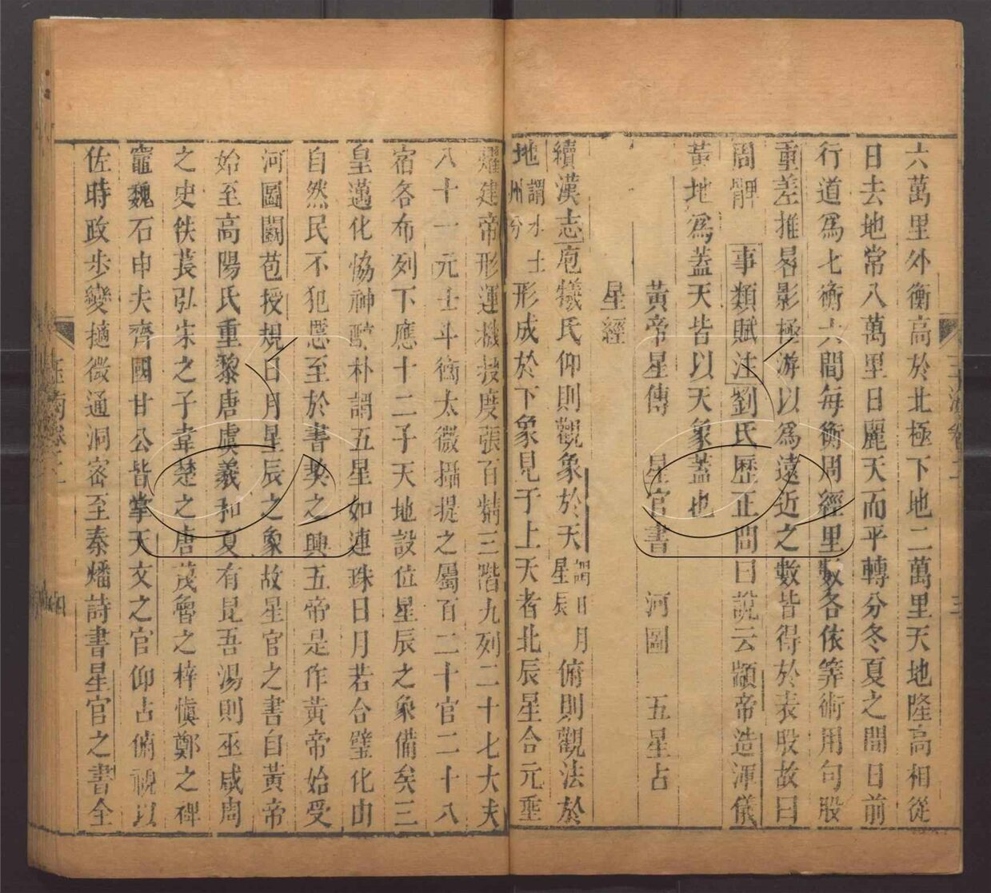 六萬里外衡高於北極下地二萬里天地隆高相從
日去地常八萬里日麗天而平轉分冬夏之間日前
行道爲七衡六間每衡周經里數各依筭術用句股
重差推晷影極游以爲遠近之數皆得於表股故曰
周髀 事類賦注劉氏歷正問曰說云顓帝造渾儀
黃地爲蓋天皆以天象蓋也
黃帝星傳 星官書 河圖 五星占
星經
續漢志庖犧氏仰則觀象於天謂日月星辰俯則觀法於
地謂水土州分形成於下象見于上天者北辰星合元垂
燿建帝形運機授度張百精三階九列二十七大夫
八十一元士斗衡太微攝提之屬百二十官二十八
宿各布列下應十二子天地設位星辰之象備矣三
皇邁化恊神醇朴謂五星如連珠日月若合璧化由
自然民不犯慝至於書契之興五帝是作黃帝始受
河圖鬭苞授規日月星辰之象故星官之書自黃帝
始至高陽氏重黎唐虞羲和夏有昆吾湯則巫咸周
之史佚萇弘宋之子韋楚之唐茂魯之梓愼鄭之禆
竈魏石申夫齊國甘公皆掌天文之官仰占俯視以
佐時政步變擿微通洞密至秦燔詩書星官之書全